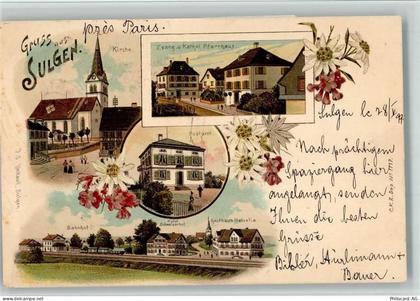 près Paris.
Gruss aus
SULGEN.
Kirche
Evang. u. Kathol. Pfarrhaus.
Postamt
Bahnhof
Hotel Schweizerhof
Gasthaus Helvetia
Sulgen le 28/X 97
Nach prächtigem
Spaziergang hier
angelangt, senden
Ihnen die besten
Grüsse
Bibler, Hürlimann +
Bauer.